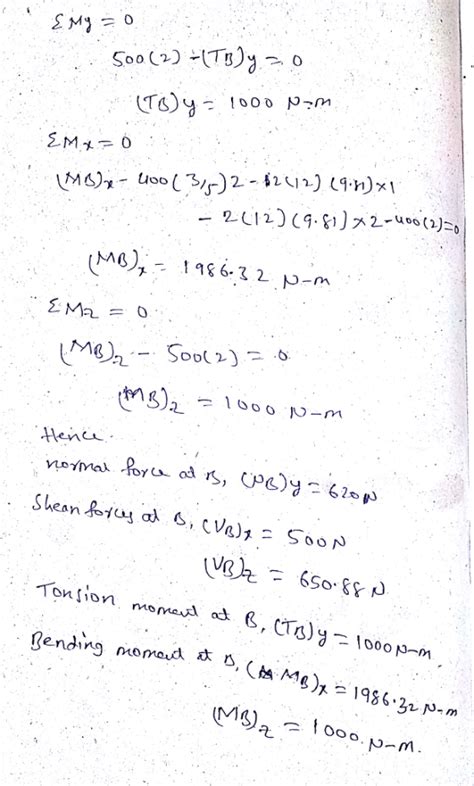 ΣMy = 0
500(2) - (TB)y = 0
(TB)y = 1000 N-m
ΣMx = 0
(MB)x - 400(3/5)2 - 2(12)(9.81)×1
- 2(12)(9.81)×2 - 400(2) = 0
(MB)x = 1986.32 N-m
ΣMz = 0
(MB)z - 500(2) = 0
(MB)z = 1000 N-m
Hence.
normal force at B, (NB)y = 620 N
Shear forces at B, (VB)x = 500 N
(VB)z = 650.88 N
Tonsion moment at B, (TB)y = 1000 N-m
Bending moment at B, (MB)x = 1986.32 N-m
(MB)z = 1000. N-m.